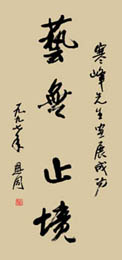 寒峰先生画展成功
藝無止境
一九九七年